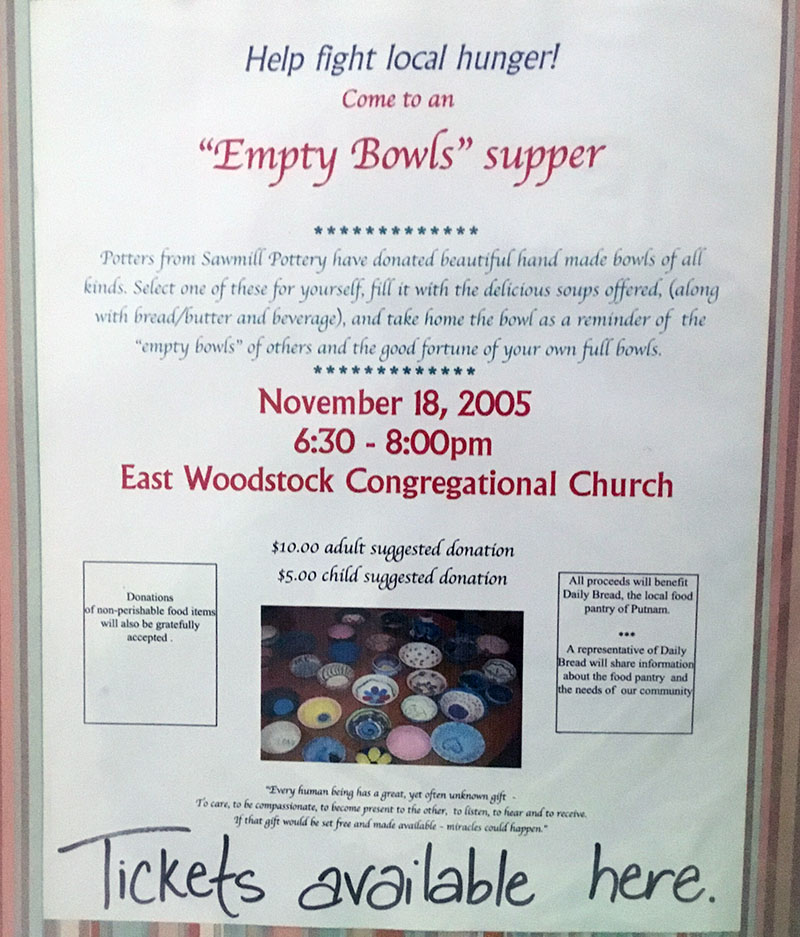 Help fight local hunger!
Come to an
“Empty Bowls” supper
*************
Potters from Sawmill Pottery have donated beautiful hand made bowls of all
kinds. Select one of these for yourself, fill it with the delicious soups offered, (along
with bread/butter and beverage), and take home the bowl as a reminder of the
“empty bowls” of others and the good fortune of your own full bowls.
*************
November 18, 2005
6:30 - 8:00pm
East Woodstock Congregational Church
$10.00 adult suggested donation
$5.00 child suggested donation
Donations
of non-perishable food items
will also be gratefully
accepted .
All proceeds will benefit
Daily Bread, the local food
pantry of Putnam.
***
A representative of Daily
Bread will share information
about the food pantry and
the needs of our community
"Every human being has a great, yet often unknown gift -
To care, to be compassionate, to become present to the other, to listen, to hear and to receive.
If that gift would be set free and made available - miracles could happen."
Tickets available here.